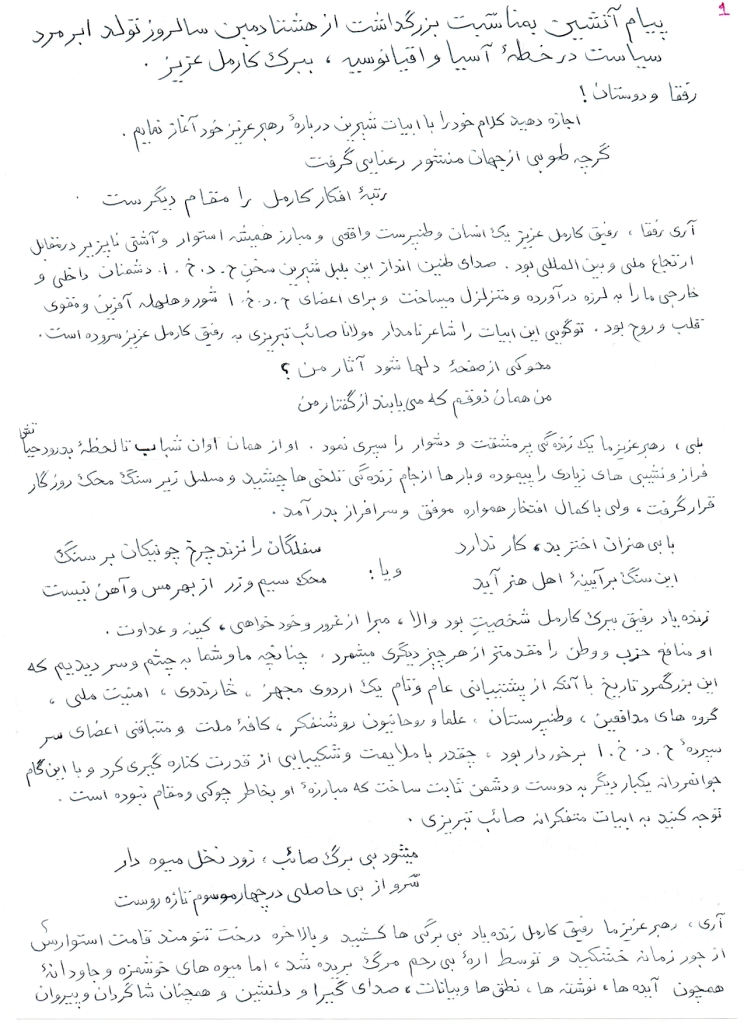 1
پیام آتشین بمناسبت بزرگداشت از هشتادمین سالروز تولد ابر مرد
سیاست در خطهٔ آسیا و اقیانوسیه ، ببرک کارمل عزیز .
رفقا و دوستان !
اجازه دهید کلام خود را با ابیات شیرین دربارهٔ رهبر عزیز خود آغاز نمایم .
گرچه طوبی از جهان منشور رعنایی گرفت
رتبهٔ افکار کارمل را مقام دیگرست .
آری رفقا ، رفیق کارمل عزیز یک انسان وطنپرست واقعی و مبارز همیشه استوار و آشتی ناپزیر در مقابل
ارتجاع ملی و بین المللی بود . صدای طنین انداز این بلبل شیرین سخن ح . د . خ . ا . دشمنان داخلی و
خارجی ما را به لرزه درآورده و متزلزل میساخت و برای اعضای ح . د . خ . ا شور و هلهله آفرین و مقوی
قلب و روح بود . تو گویی این ابیات را شاعر نامدار مولانا صائب تبریزی به رفیق کارمل عزیز سروده است .
محو کی از صفحهٔ دلها شود آثار من ؟
من همان ذوقم که می یابند از گفتار من
بلی ، رهبر عزیز ما یک زنده گی پر مشقت و دشوار را سپری نمود . او از همان اوان شباب تا لحظهٔ بدرود حیاتش
فراز و نشیبی های زیادی را پیموده و بار ها از جام زنده گی تلخی ها چشید و مسلسل زیر سنگ محک روزگار
قرار گرفت ، ولی با کمال افتخار همواره موفق و سرافراز بدر آمد .
با بی هنران اختر بد، کار ندارد
سفلگان را نزند چرخ چو نیکان بر سنگ
و یا :
این سنگ بر آیینهٔ اهل هنر آید
محک سیم و زر از بهر مس و آهن نیست
زنده یاد رفیق ببرک کارمل شخصیتِ بود والا ، مبرا از غرور و خود خواهی ، کینه و عداوت .
او منافع حزب و وطن را مقدمتر از هر چیز دیگری میشمرد . چنانچه ما و شما به چشم و سر دیدیم که
این بزرگمرد تاریخ با آنکه از پشتیبانی عام و تام یک اردوی مجهز ، څارندوی ، امنیت ملی ،
گروه های مدافعین ، وطنپرستان ، علما و روحانیون روشنفکر ، کافهٔ ملت و متباقی اعضای سر
سپردهٔ ح . د . خ . ا برخوردار بود ، چقدر با ملایمت و شکیبایی از قدرت کناره گیری کرد و با این گام
جوانمردانه یکبار دیگر به دوست و دشمن ثابت ساخت که مبارزهٔ او بخاطر چوکی و مقام نبوده است .
توجه کنید به ابیات متفکرانه صائب تبریزی .
میشود بی برگ صائب ، زود نخل میوه دار
سَرو از بی حاصلی در چهار موسوم تازه روست
آری ، رهبر عزیز ما رفیق کارمل زنده یاد بی برگی ها کشید و بالاخره درخت تنومند قامت استوارش
از جور زمانه خشکید و توسط ارهٔ بی رحم مرگ بریده شد ، اما میوه های خوشمزه و جاودانهٔ
همچون آیده ها ، نوشته ها ، نطق ها و بیانات ، صدای گیرا و دلنشین و همچنان شاگردان و پیروان